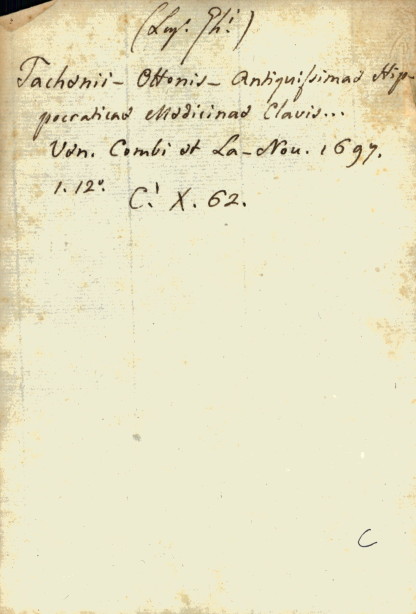 Tachenii - Ottonis - Antiquissimae Hip-
pocraticae Medicinae Clavis...
Ven. Combi et La-Nou. 1697.
1. 12º.
C! X. 62.
C